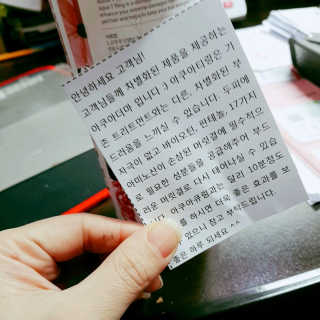 안녕하세요 고객님!
고객님들께 차별화된 제품을 제공하는
아쿠아디마 입니다 :) 아쿠아디칼은 기
존 트리트먼트와는 다른, 차별화된 부
드러움을 느끼실 수 있습니다. 두피에
자극이 없고 바이오틴, 판테놀, 17가지
아미노산이 손상된 머릿결에 필수적으
로 필요한 성분들을 공급해주어 부드
러운 머릿결로 다시 태어나실 수 있습
아쿠아큐컬과는 달리 10분정도
를 하시면 더욱 좋은 효과를 보
있으니 참고 부탁드립니다.
좋은 하루 되세요 ^^